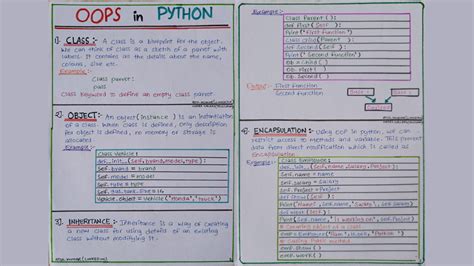 OOPS in PYTHON
1] CLASS :- A class is a blueprint for the object.
We can think of class as a sketch of a parrot with
labels. It contains all the details about the name,
colours, size etc.
Example :-
Class parrot:
pass
Class keyword to define an empty class parrot.
2] OBJECT:- An object (instance) is an instantiation
of a class. When class is defined, only description
for object is defined, no memory or storage is
allocated.
Example:-
Class Vehicle:
def __init__(self, brand, model, type):
self.brand = brand
self.model = model
self.type = type
self.gas_tank_size = 14
Vehicle object = Vehicle("Honda",
3] INHERITANCE :- Inheritance is a way of creating
a new class for using details of an existing
class without modifying it.
Example:-
Class Parent():
def first(self):
Print("First Function")
Class Child(Parent):
def Second(self):
Print("Second Function")
Ob = Child()
Ob.first()
Ob.Second()
Output: First Function
Second Function
4] ENCAPSULATION:- Using OOP in python, we can
restrict access to methods and variable. This prevent
data from direct modification which is called as
encapsulation
Example:-
Class Employee:
def __init__(self, name, salary, Project):
Self.name = name
Self.salary = salary
Self.Project = Project
def Show(self):
Print("Name:", self.name, 'Salary:', self.Salary)
def work(self):
Print(self.name, 'is working on', self.Project)
Creating object of a class
Calling Public method
emp.Show()
emp.work()